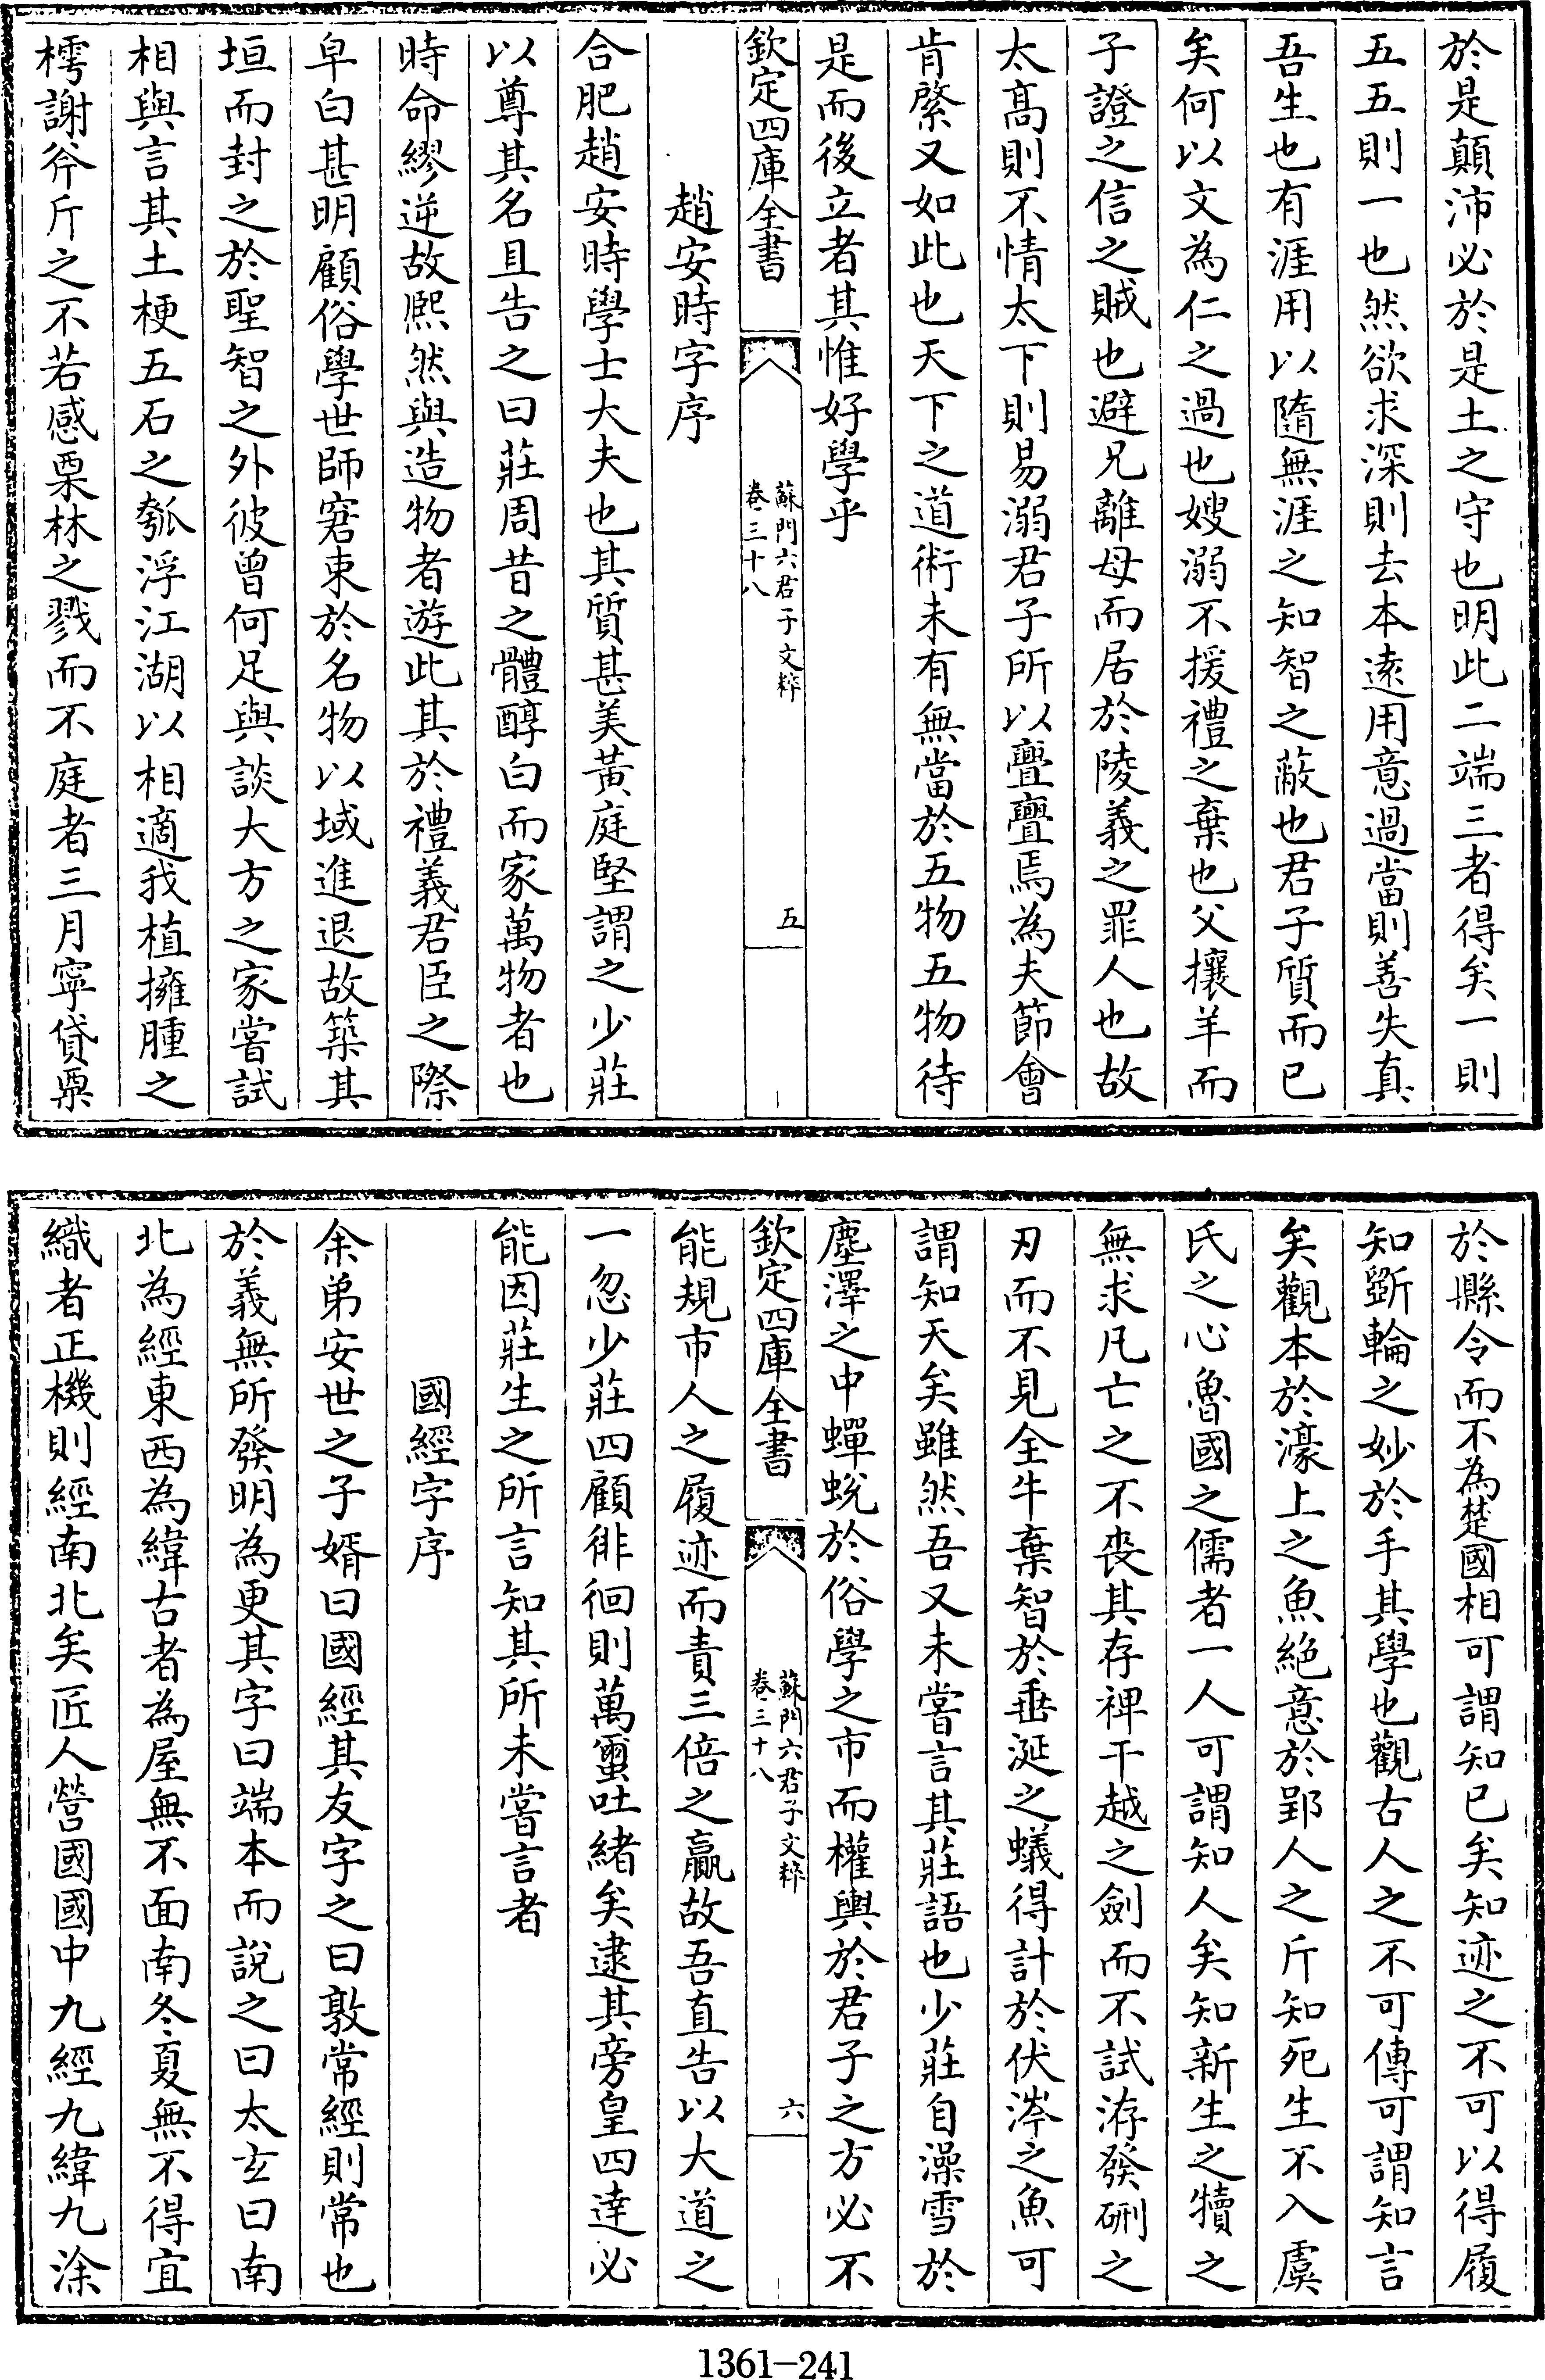 於是顛沛必於是土之守也明此二端三者得矣一則
五五則一也然欲求深則去本逺用意過當則善失真
吾生也有涯用以隨無涯之知智之蔽也君子質而已
矣何以文為仁之過也嫂溺不援禮之棄也父攘羊而
子證之信之賊也避兄離母而居於陵義之罪人也故
太髙則不情太下則易溺君子所以亹亹焉為夫節會
肯綮又如此也天下之道術未有無當於五物五物待
是而後立者其惟好學乎
欽定四庫全書
蘇門六君子文粹
卷三十八
五
趙安時字序
合肥趙安時學士大夫也其質甚美黃庭堅謂之少莊
以尊其名且告之曰莊周昔之體醇白而家萬物者也
時命繆逆故熈然與造物者遊此其於禮義君臣之際
皁白甚明顧俗學世師窘束於名物以域進退故築其
垣而封之於聖智之外彼曾何足與談大方之家嘗試
相與言其土梗五石之瓠浮江湖以相適我植擁腫之
樗謝斧斤之不若感栗林之戮而不庭者三月寧貸粟
於縣令而不為楚國相可謂知已矣知迹之不可以得履
知斲輪之妙於手其學也觀古人之不可傳可謂知言
矣觀本於濠上之魚絶意於郢人之斤知死生不入虞
氏之心魯國之儒者一人可謂知人矣知新生之犢之
無求凡亡之不喪其存禆干越之劍而不試洊發硎之
刃而不見全牛棄智於垂涎之蟻得計於伏涔之魚可
謂知天矣雖然吾又未嘗言其莊語也少莊自澡雪於
塵澤之中蟬蛻於俗學之市而權輿於君子之方必不
欽定四庫全書
蘇門六君子文粹
卷三十八
六
能規市人之履迹而責三倍之贏故吾直告以大道之
一忽少莊四顧徘徊則萬蠒吐緒矣逮其旁皇四達必
能因莊生之所言知其所未嘗言者
國經字序
余弟安世之子婿曰國經其友字之曰敦常經則常也
於義無所發明為更其字曰端本而說之曰太玄曰南
北為經東西為緯古者為屋無不面南冬夏無不得宜
織者正機則經南北矣匠人營國國中九經九緯九涂
1361-241